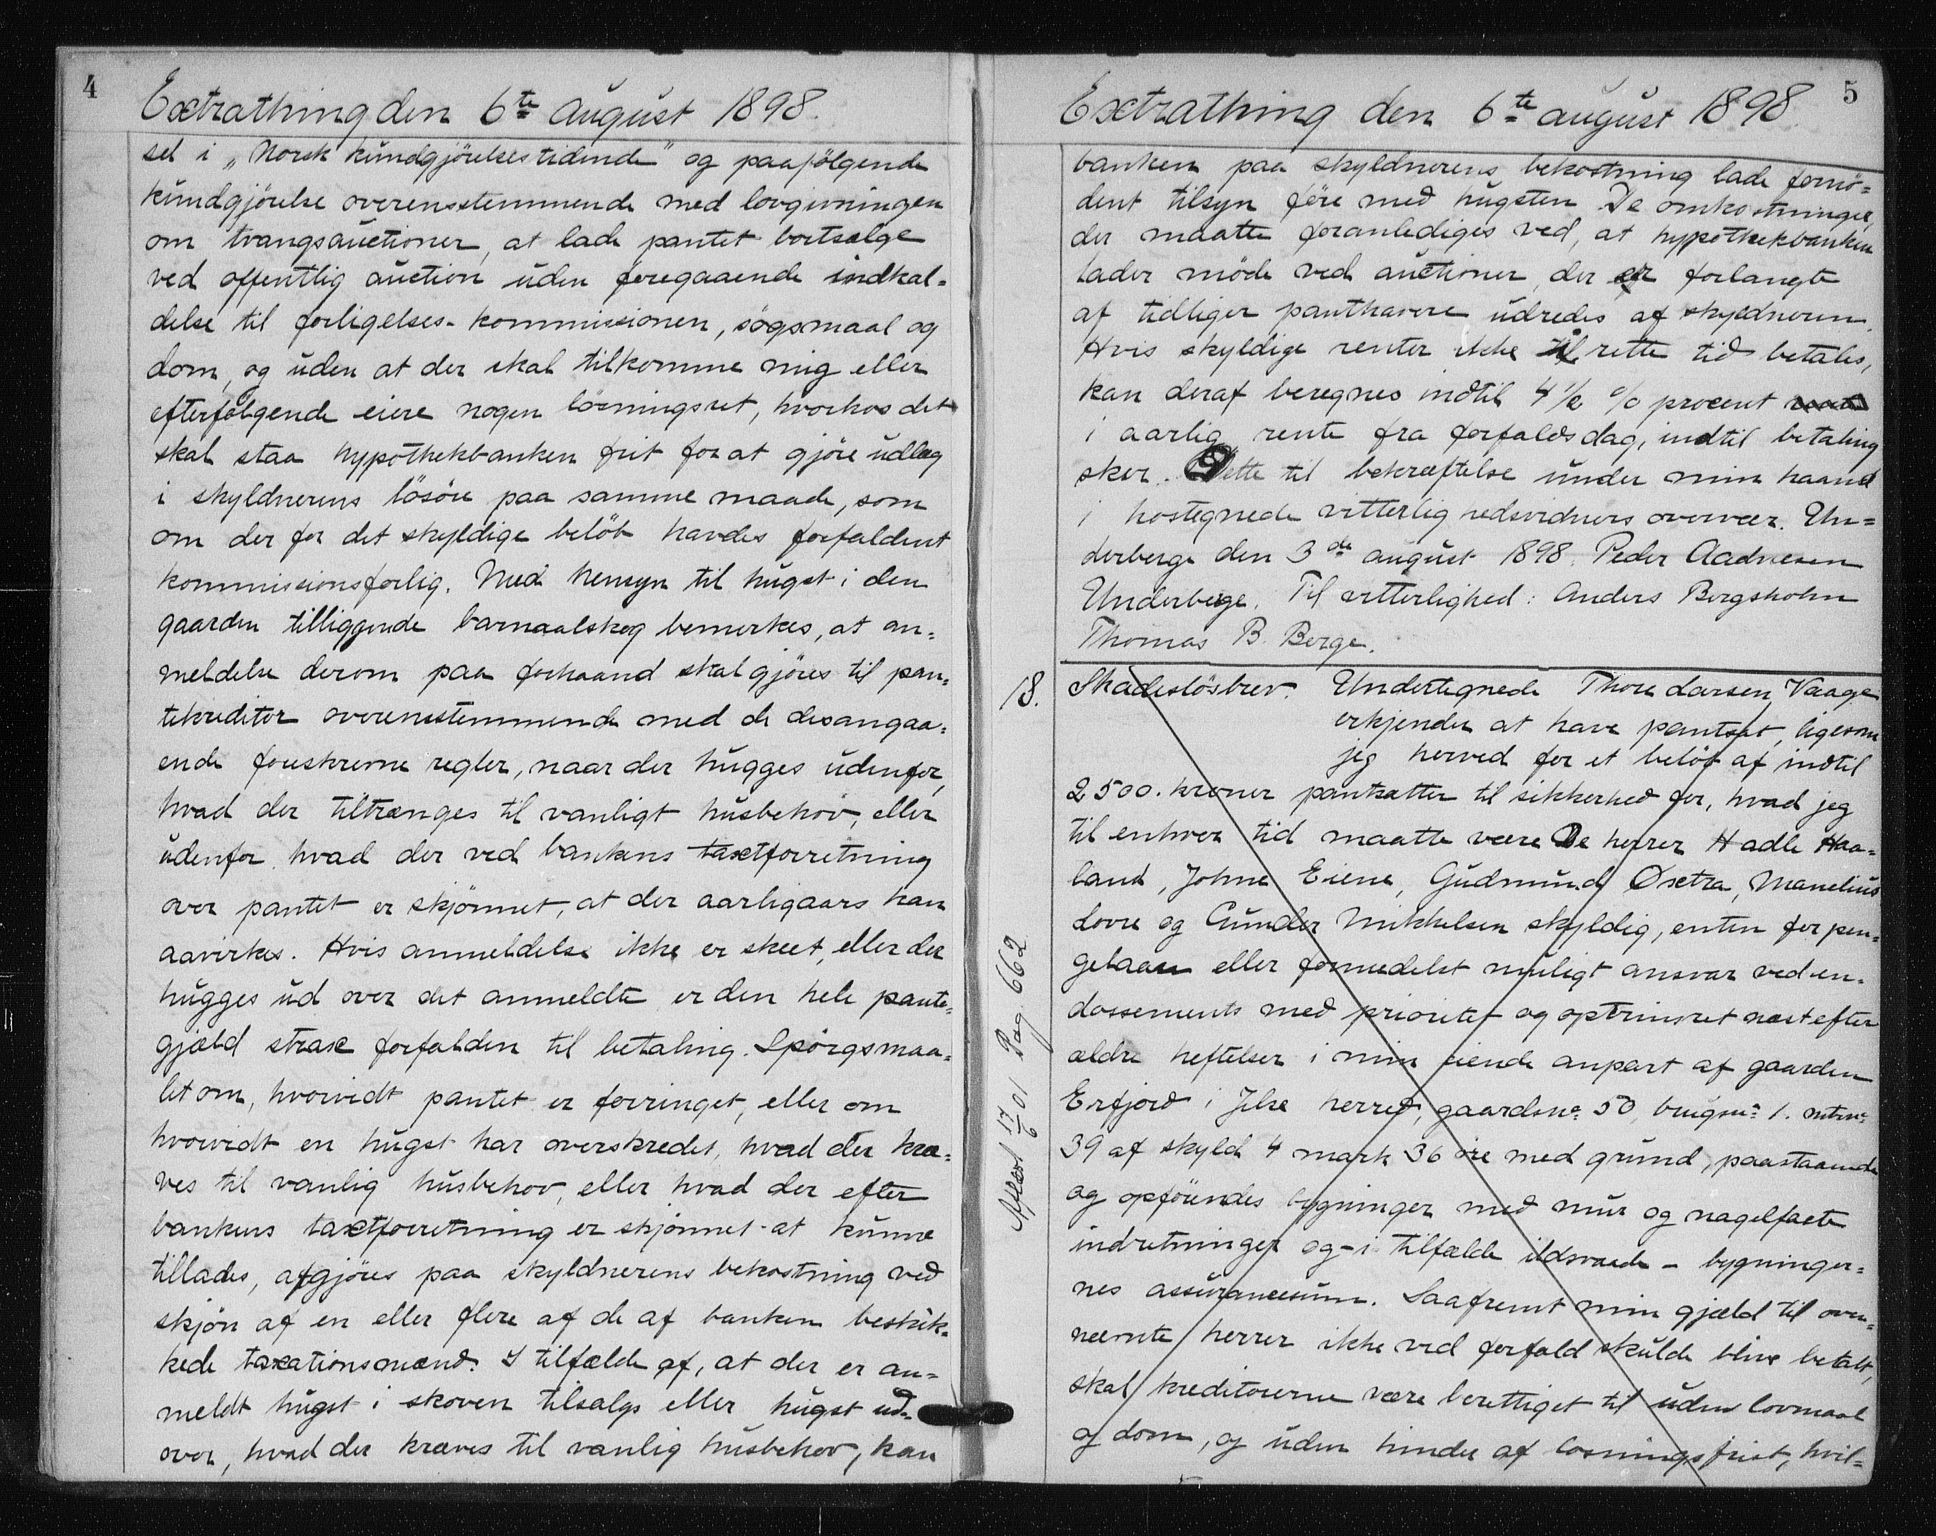 4
Extrathing den 6te august 1898.
sel i „Norsk kundgjörelsestidende" og paafölgende
kundgjörelse overensstemmende med lovgivningen
om tvangsauctioner, at lade pantet bortsælge
ved offentlig auction uden foregaaende indkal-
delse til forligelses-kommissionen, sögsmaal og
dom, og uden at der skal tilkomme mig eller
efterfölgende eiere nogen lösningsret, hvorhos det
skal staa hypothekbanken frit for at gjöre udlæg
i skyldnerens lösöre paa samme maade, som
om der for det skyldige belöb havdes forfaldent
kommissionsforlig. Med hensyn til hugst i den
gaarden tilliggende barnaalskog bemerkes, at an-
meldelse derom paa forhaand skal gjöres til pan-
tekreditor overensstemmende med de desangaa-
ende foreskrevne regler, naar der hugges udenfor,
hvad der tiltrænges til vanligt husbehov, eller
udenfor hvad der ved bankens taxtforretning
over pantet er skjönnet, at der aarligaars kan
aavirkes. Hvis anmeldelse ikke er skeet, eller der
hugges ud over det anmeldte er den hele pante-
gjæld strax forfalden til betaling. Spörgsmaa-
let om, hvorvidt pantet er forringet, eller om
hvorvidt en hugst har overskredet, hvad der kræ-
ves til vanlig husbehov, eller hvad der efter
bankens taxtforretning er skjönnet at kunne
tillades, afgjöres paa skyldnerens bekostning ved
skjön af en eller flere af de af banken beskik-
kede taxationsmænd. I tilfælde af, at der er an-
meldt hugst i skoven tilsalgs eller hugst ud-
over, hvad der kræves til vanlig husbehov, kan
5
Extrathing den 6te august 1898.
banken paa skyldnerens bekostning lade fornö-
dent tilsyn före med hugsten. De omkostninger,
der maatte foranlediges ved, at hypothekbanken
lader möde ved auctioner, der er forlangte
af tidliger panthavere udredes af skyldneren.
Hvis skyldige renter ikke til rette tid betales,
kan deraf beregnes indtil 4 1/2 % procent
i aarlig rente fra forfaldsdag, indtil betaling
sker. Dette til bekræftelse under min haand
i hostegnede vitterlig vedsvidners overvær. Un-
derberge den 3de august 1898. Peder Aadnesen
Underberge. Til vitterlighed: Anders Bergsholm
Thomas B. Berge.
18. Skadeslösbrev. Undertegnede Thore Larsen Vaage
erkjender at have pantsat, ligesom
jeg herved for et belöb af indtil
2500. kroner pantsætter til sikkerhed for, hvad jeg
til enhver tid maatte være De herrer Hadle Haa-
land, Johne Eiene, Gudmund Øxtra, Manelius
Lovre og Gunder Mikkelsen skyldig, enten for pen-
gelaan eller formedelst muligt ansvar ved en-
dossements med prioritet og optrinsret næst efter
ældre heftelser i min eiende anpart af gaarden
Erfjord i Jelse herred, gaardsno 50, brugsno 1. mtrno
39 af skyld 4 mark 36 öre med grund, paastaaende
og opförendes bygninger med mur og nagelfaste
indretninger og - i tilfælde ildsvaade - bygninger-
nes assurancesum. Saafremt min gjæld til oven-
nævnte herrer ikke ved forfald skulde blive betalt,
skal kreditorerne være berettiget til uden lovmaal
og dom, og uden hinder af løsningsfrist, hvil-
Aflest 17/6 01 Pag 662